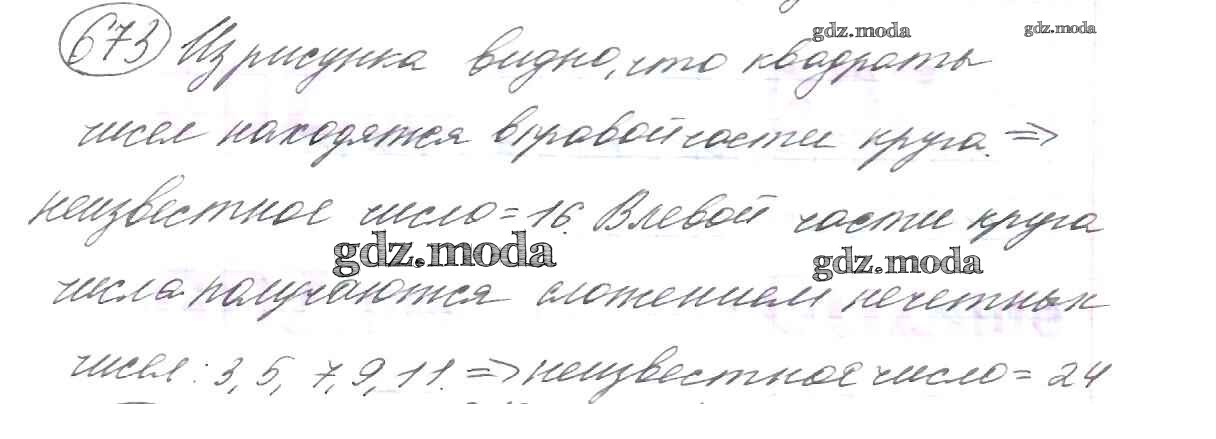 gdz.moda gdz.moda
673 Из рисунка видно, что квадраты
чисел находятся в правой части круга. =>
неизвестное число = 16. В левой части круга
gdz.moda gdz.moda
числа получаются сложением нечетных
чисел: 3, 5, 7, 9, 11. => неизвестное число = 24